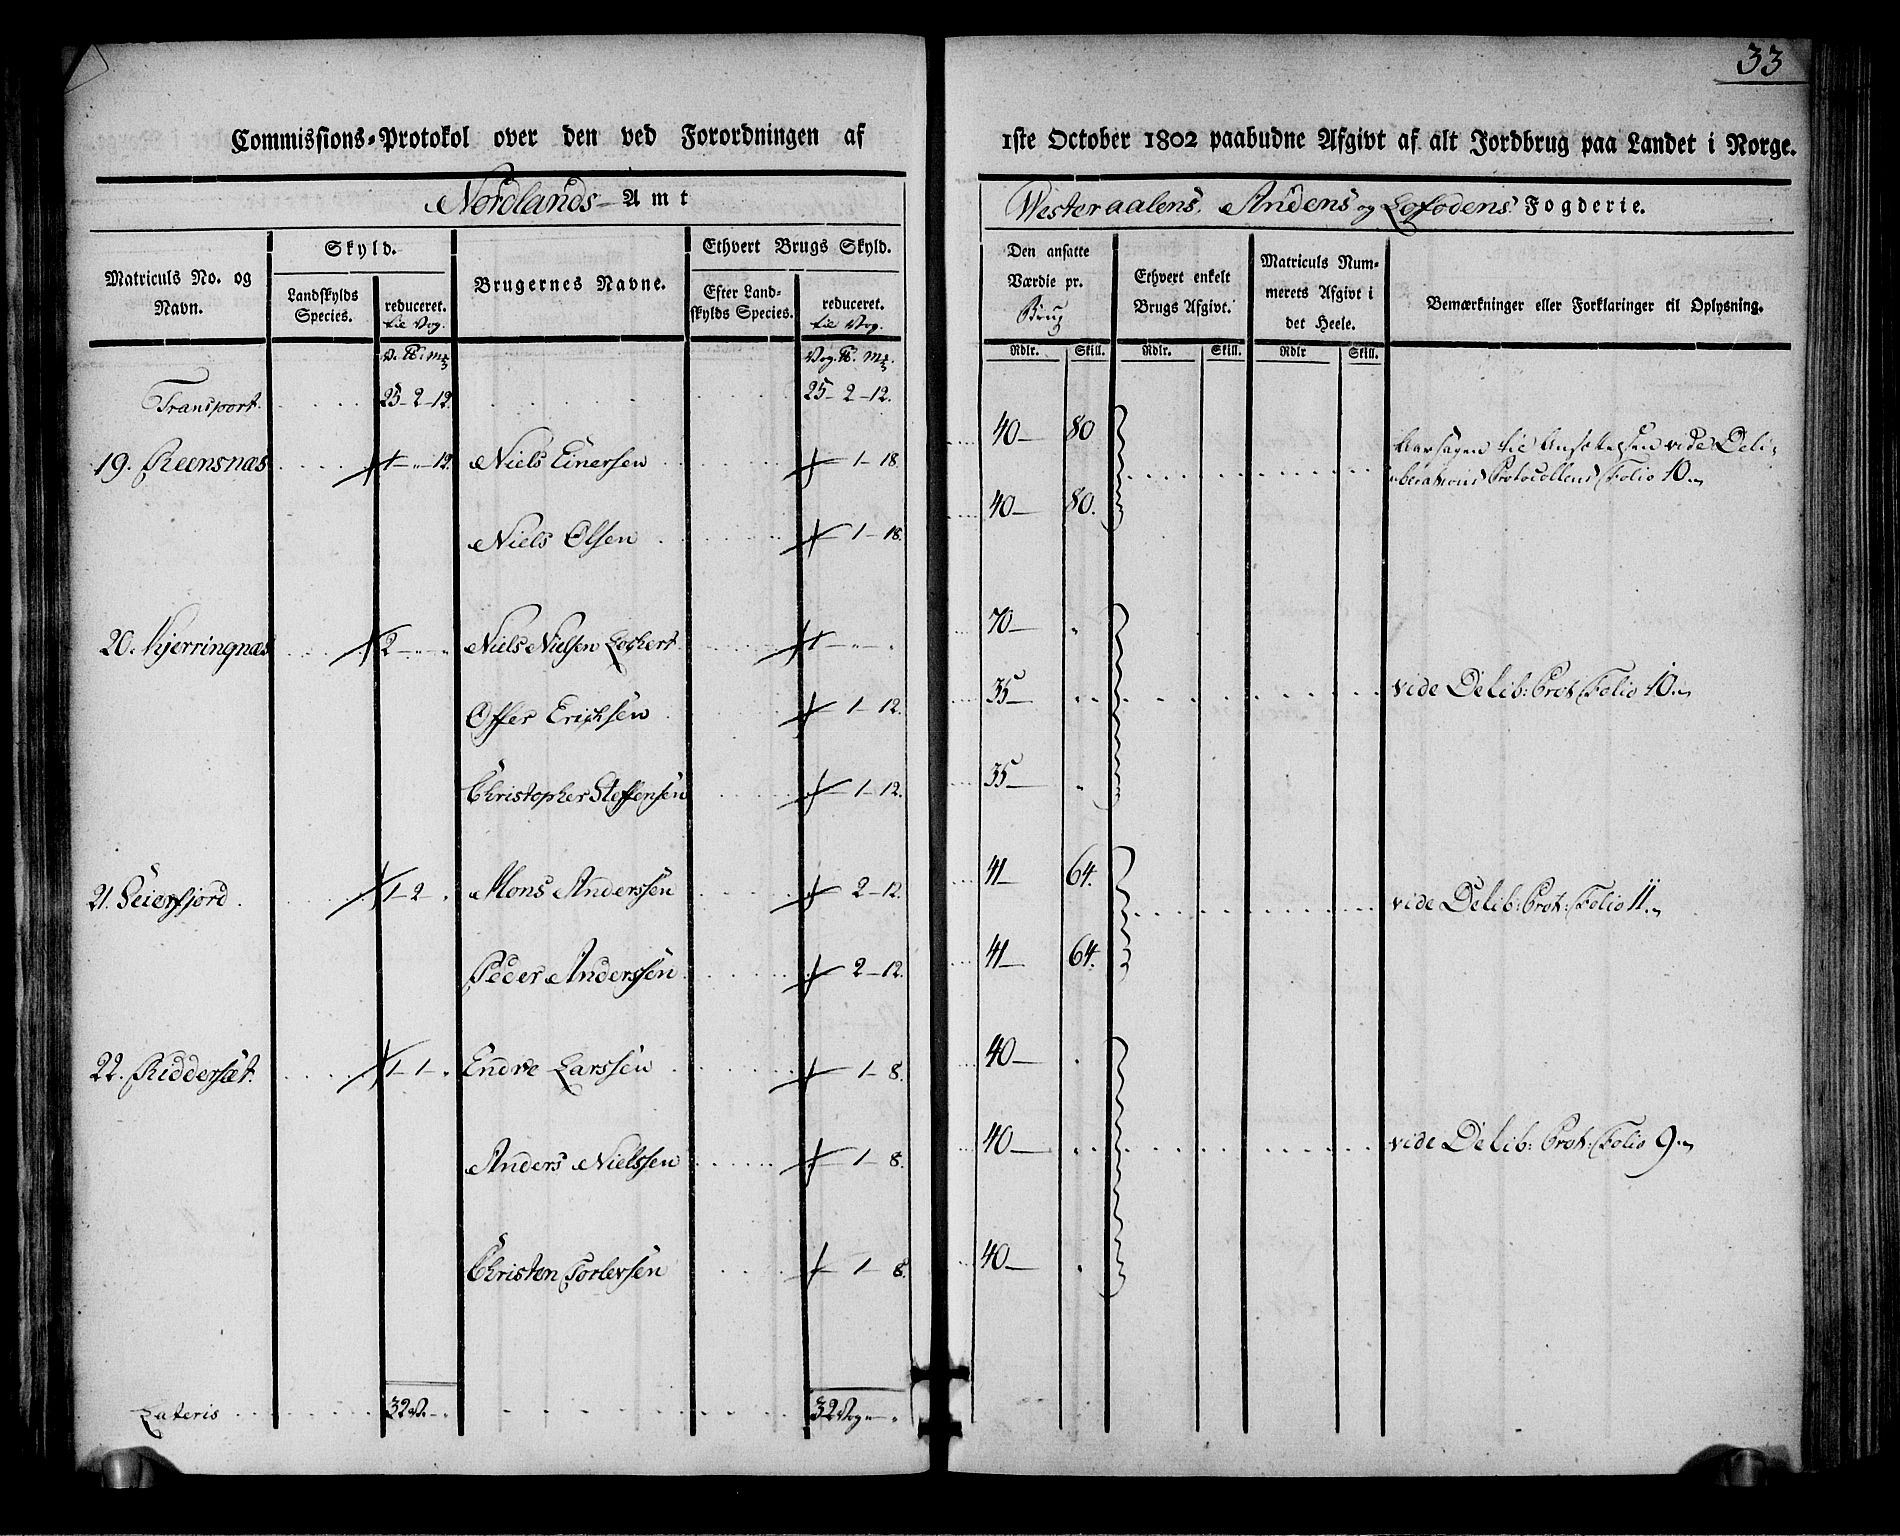 33
Commissions-Protokol over den ved Forordningen af 1ste October 1802 paabudne Afgivt af alt Jordbrug paa Landet i Norge.
Nordlands Amt
Westeraalens Andens og Lofodens Fogderie.
Matriculs No. og Navn.
Skyld.
Landskylds Species.
reduceret. til Vog.
Brugernes Navne.
Ethvert Brugs Skyld.
Efter Landskylds Species.
reduceret. til Vog.
Den ansatte Værdie pr. Brug
Ethvert enkelt Brugs Afgivt.
Matriculs Nummerets Afgivt i det Heele.
Bemærkninger eller Forklaringer til Oplysning.
Rdlr. Skill. Rdlr. Skill. Rdlr Skill.
Transport. 25-2-12. 25-2-12.
19. Reensnæs 1-"-12. Niels Einersen 1-18. 40- 80
Aarsagen til Ansættelsen vide Deli-
berations Protocollens Folio 10.
Niels Olsen 1-18. 40- 80.
20. Kjerringnæs 2-"-" Niels Nielsen Lochert 1-"-" 70- "
Offer Erichsen 1-12. 35- vide Delib: Prot: Folio 10.
Christopher Steffensen 1-12. 35- "
21. Seierfjord. 1-2 " Mons Anderssen 2-12. 41- 64. vide Delib: Prot: Folio 11.
Peder Anderssen 2-12. 41- 64.
22. Riddersæt. 1-1-" Endre Larssen 1-8. 40- "
Anders Nielssen 1-8. 40- vide Delib: Prot: Folio 9.
Christen Torlevsen 1-8. 40- "
Lateris 32 V.-" 32 Vog-"